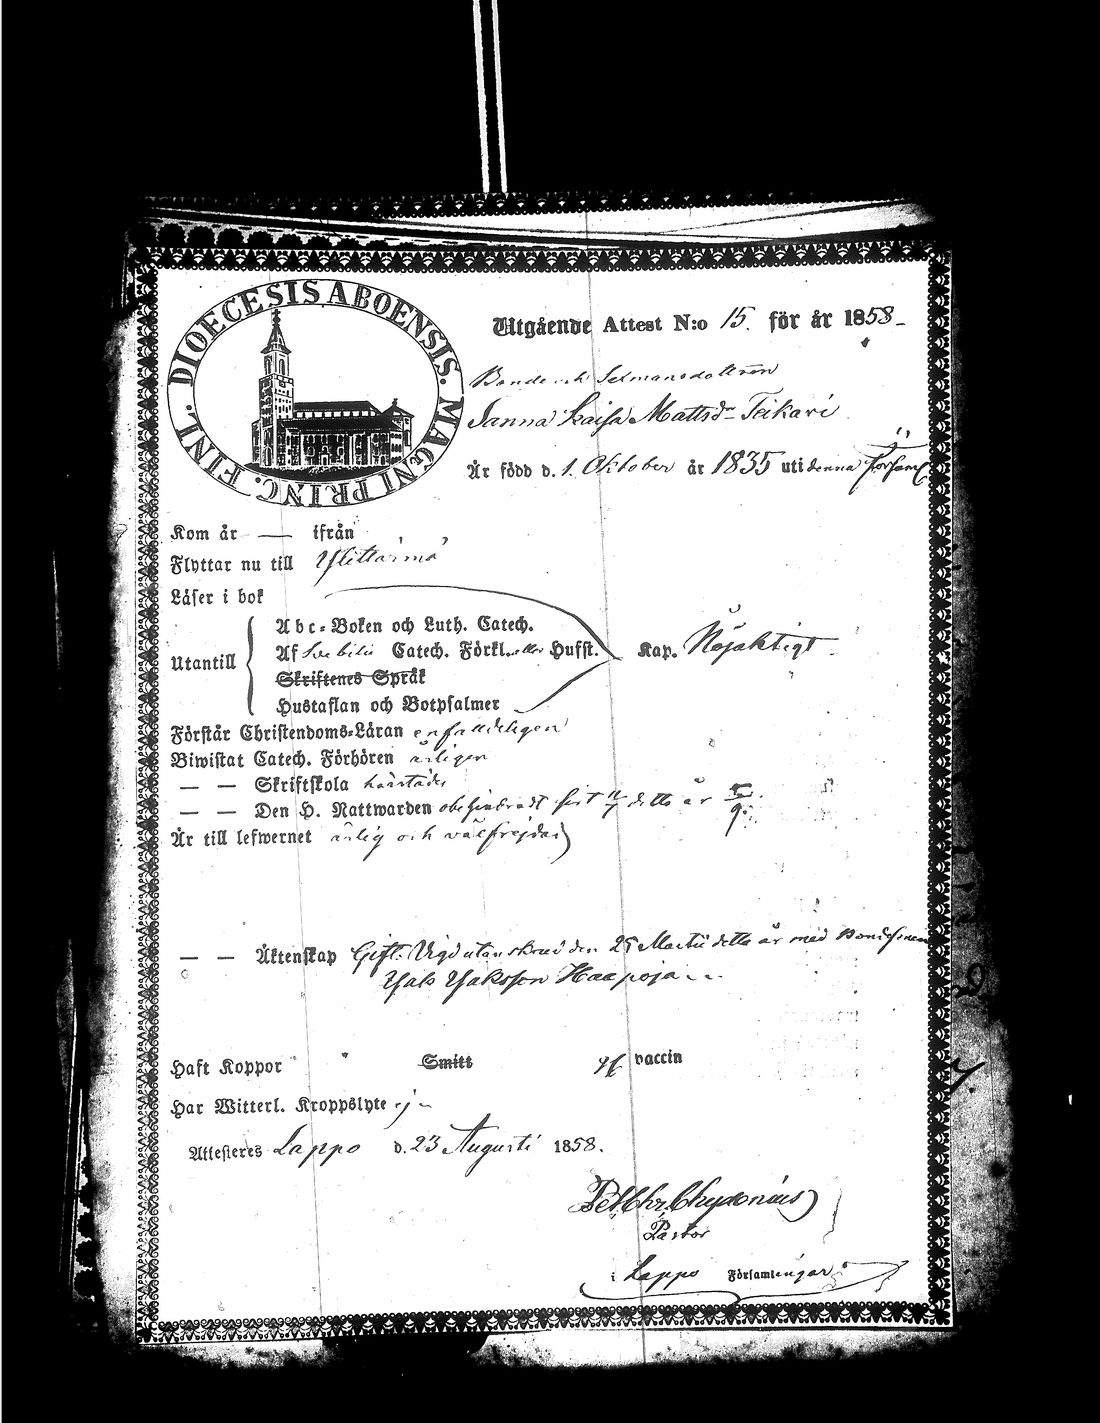 DIOECESIS ABOENSIS. MAGNI PRINC. FINL.
Utgående Attest N:o 15. för år 1858_
Bonde Setmansdotteren
Sanna Kaisa Mattsdr Teikari
Är född d. 1. Oktober år 1835 uti denna Förſaml
Kom år — ifrån
Flyttar nu till Ylittärmä
Läſer i bok
Utantill
Abc-Boken och Luth. Catech.
Af Svebilii Catech. Förkl. eller Husſt. Kap. Nöjaktigt.
Skriftenes Språk
Hustaflan och Botpſalmer
Förſtår Chriſtendoms-Läran enfalldeligen
Biwiſtat Catech. Förhören årligen
— — Skriftſkola härstädes
— — Den H. Nattwarden obehindradt ſist detta år
Är till lefwernet ärlig och välfrejdad
— — Äktenſkap Gift. Vigd utan skrud den 25 Martii detta år med Bondeſonen
Jak Jaksſon Haapoja
Haft Koppor Smitt af vaccin
Har Witterl. Kroppslyte ej -
Atteſteres Lappo d. 23 Augusti 1858.
Pet Chr. Chydenius
Pastor
i Lappo Förſamlingar